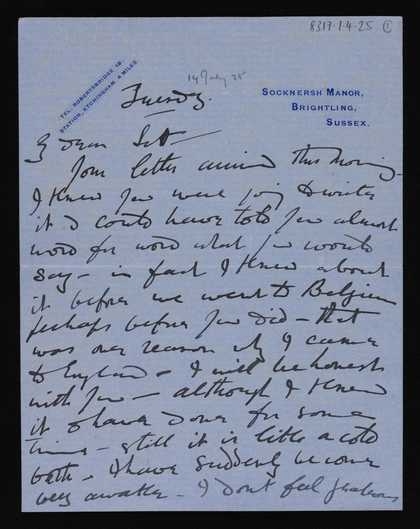 8317.1.4.25 1
TEL: ROBERTSBRIDGE 48.
STATION, ETCHINGHAM, 4 MILES.
14 July 25
Tuesday.
SOCKNERSH MANOR,
BRIGHTLING,
SUSSEX.
My dear
Your letter arrived this morning -
I knew you were going to write
it & could have told you almost
word for word what you would
say - in fact I knew about
it before we went to Belgium
perhaps before you did - that
was one reason why I came
to England - I will be honest
with you - although I knew
it & have done for some
time - still it is like a cold
bath - I have suddenly become
very awake - I don't feel jealous